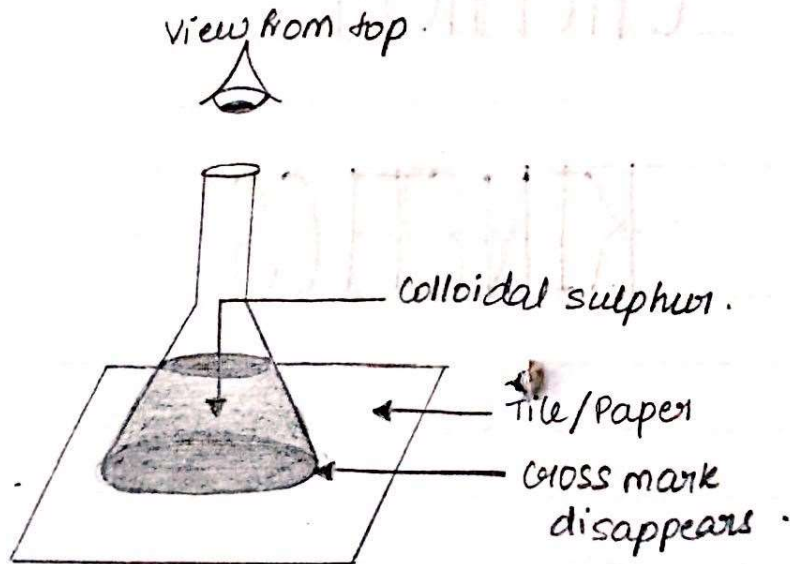 View from top.
Colloidal sulphur.
Tile/Paper
Cross mark
disappears.